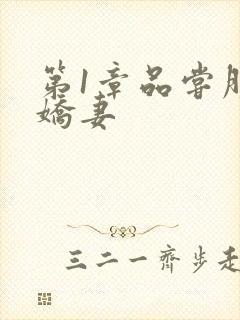 第1章品尝
娇妻
三二一齐步走